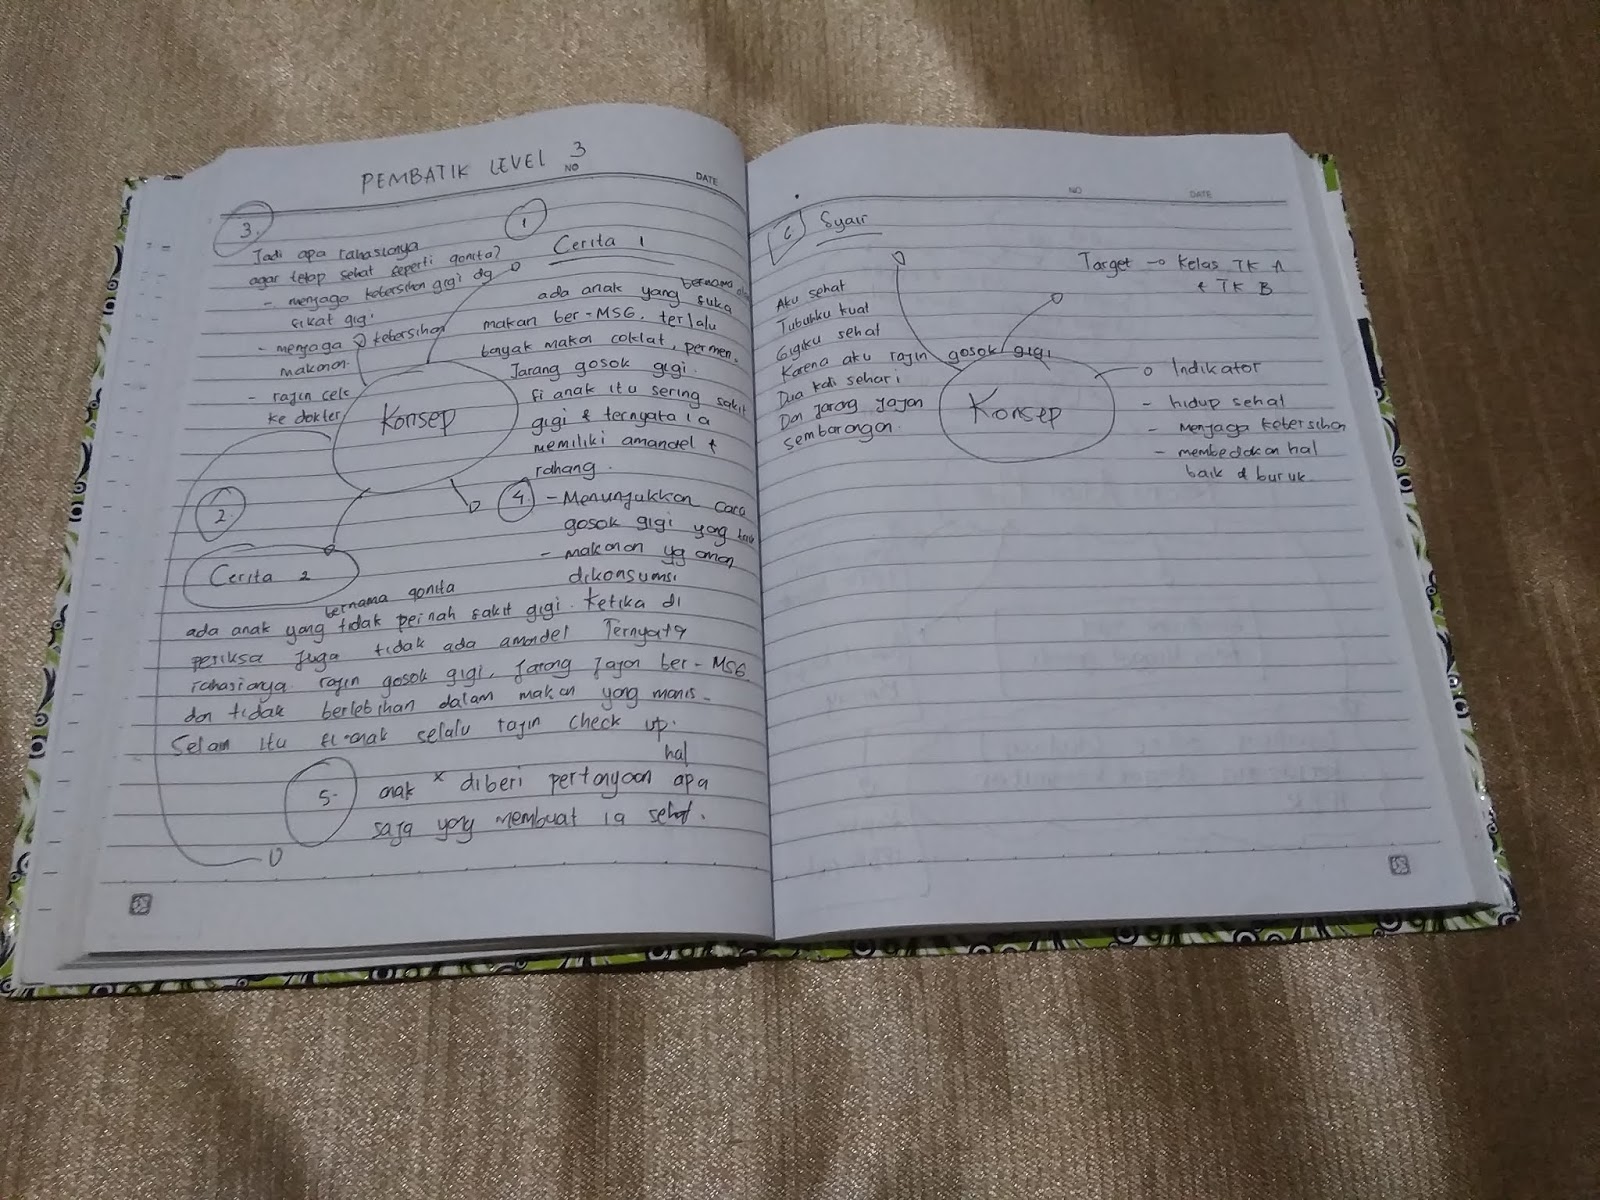 PEMBATIK LEVEL 3
NO
DATE
3.
Jadi apa rahasianya
agar tetap sehat seperti qonita?
- menjaga kebersihan gigi dg
sikat gigi
- menjaga kebersihan
makanan
- rajin cek
ke dokter
1
Cerita 1
bernama
ada anak yang suka
makan ber-MSG. terlalu
banyak makan coklat, permen.
Jarang gosok gigi.
si anak itu sering sakit
gigi & ternyata ia
memiliki amandel +
rahang.
Konsep
4.
- Menunjukkan cara
gosok gigi yang
- makanan yg aman
dikonsumsi
2.
Cerita 2
bernama qonita
ada anak yang tidak pernah sakit gigi. Ketika di
periksa juga tidak ada amandel Ternyata
rahasianya rajin gosok gigi, Jarang jajan ber-MSG
dan tidak berlebihan dalam makan yang manis.
Selain itu si anak selalu rajin check up.
5.
hal
anak x diberi pertanyaan apa
saja yang membuat ia sehat.
NO
DATE
6 Syair
Aku sehat
Tubuhku kuat
Gigiku sehat
Karena aku rajin gosok gigi
Dua kali sehari
Dan jarang jajan
sembarangan.
Target → Kelas TK A
+ TK B
Konsep
Indikator
- hidup sehat
- Menjaga kebersihan
- membedakan hal
baik & buruk.